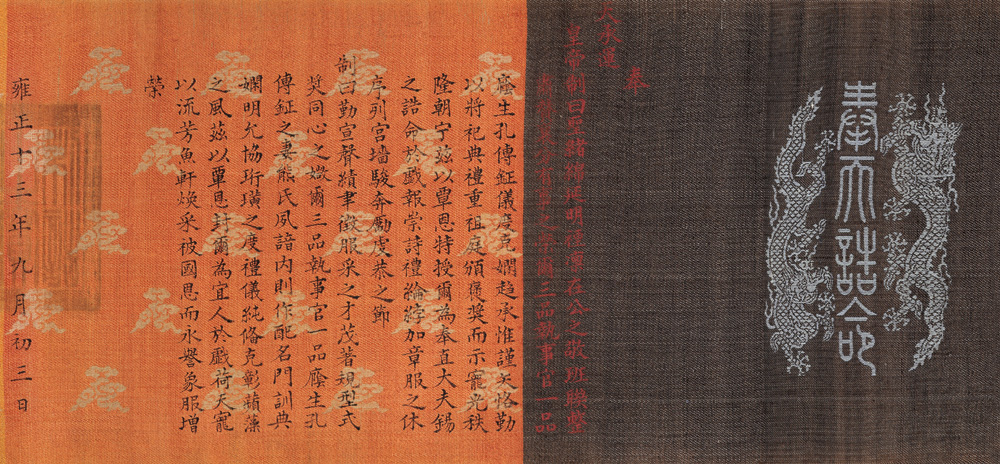 奉天誥命
奉
天承運
皇帝制曰聖緒 明禋 在公之敬班聯
之學爾三品執事官一品
廕生孔傳鉦儀度克嫻趨承惟謹矢恪勤
以將祀典禮重祖庭頒褒奬而示寵光秩
隆朝宁兹以覃恩特授爾為奉直大夫錫
之誥命於戲報崇詩禮綸綍加章服之休
序列宮墻駿奔勵虔恭之節
制曰勤宣聲績聿徵服采之才茂著規型式
奬同心之媺爾三品執事官一品廕生孔
傳鉦之妻熊氏夙諳內則作配名門訓典
嫻明允協珩璜之度禮儀純備克彰蘋藻
之風兹以覃恩封爾為宜人於戲荷天寵
以流芳魚軒煥采被國恩而永譽象服增
榮
雍正十三年九月初三日